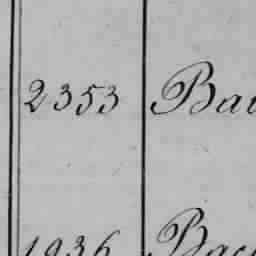 2353 Bau
1936 Bac